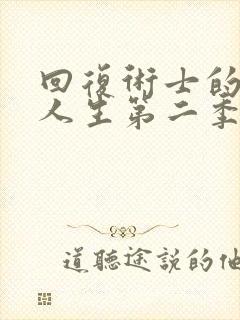 回復術士的
人生第二季
道聽途說的他